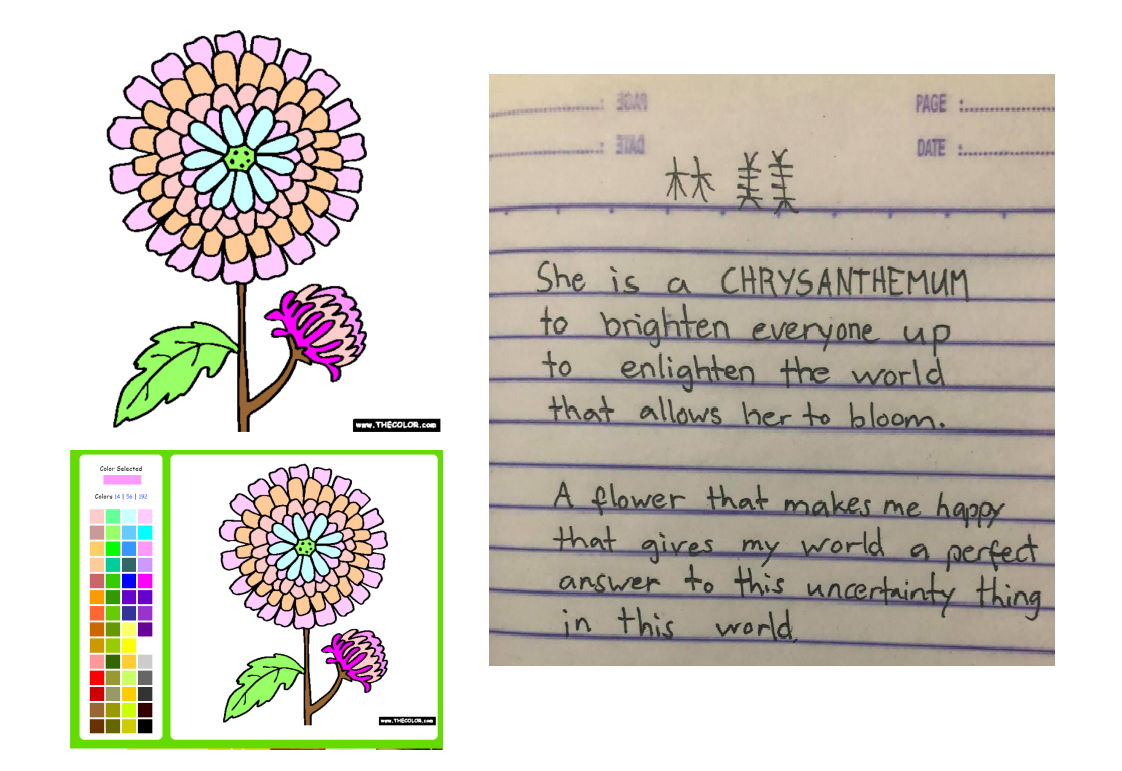 www.THECOLOR.com
Color Selected
Colors 14 | 56 | 192
www.THECOLOR.com
PAGE :
DATE :
林 美美
She is a CHRYSANTHEMUM
to brighten everyone up
to enlighten the world
that allows her to bloom.
A flower that makes me happy
that gives my world a perfect
answer to this uncertainty thing
in this world.